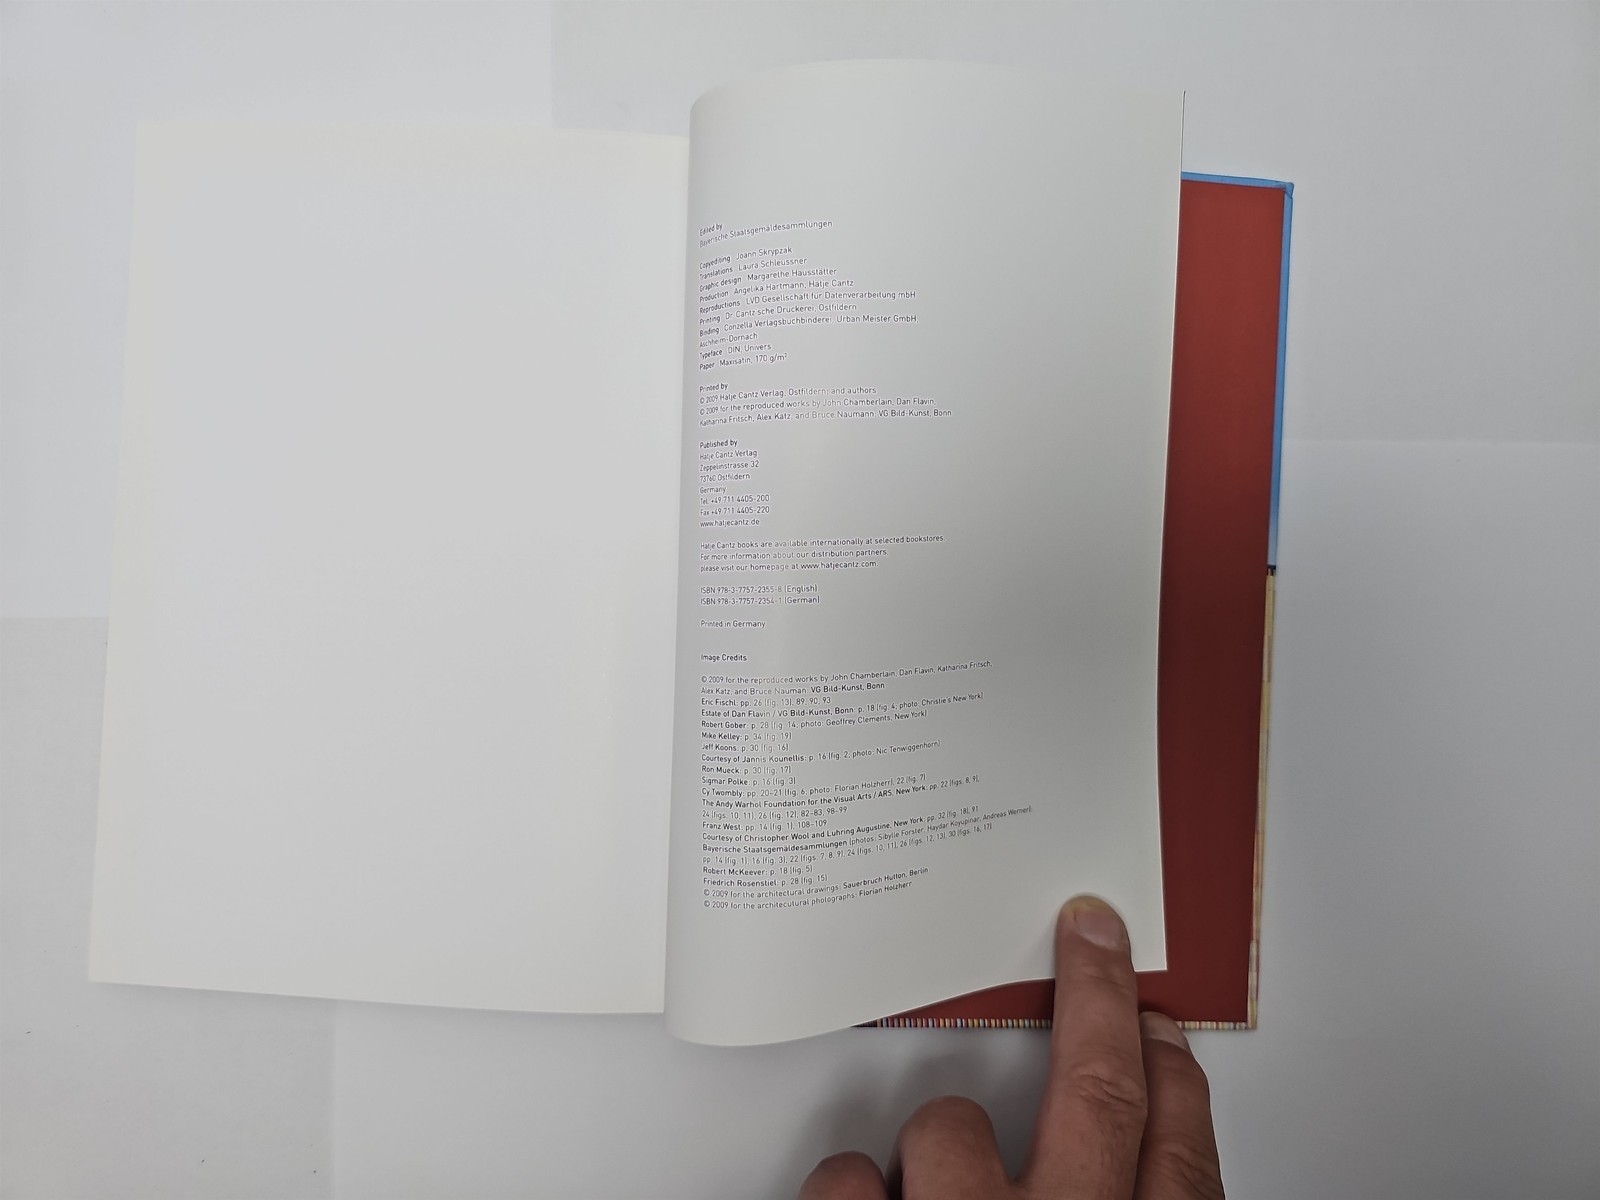 Edited by
Bayerische Staatsgemäldesammlungen
Copyediting: Joann Skrypzak
Translations: Laura Schleussner
Graphic design: Margarethe Hausstätter
Production: Angelika Hartmann, Hatje Cantz
Reproductions: LVD Gesellschaft für Datenverarbeitung mbH
Printing: Dr. Cantz'sche Druckerei, Ostfildern
Binding: Conzella Verlagsbuchbinderei, Urban Meister GmbH,
Aschheim-Dornach
Typeface: DIN, Univers
Paper: Maxisatin, 170 g/m²
Printed by
© 2009 Hatje Cantz Verlag, Ostfildern, and authors
© 2009 for the reproduced works by John Chamberlain, Dan Flavin,
Katharina Fritsch, Alex Katz, and Bruce Naumann: VG Bild-Kunst, Bonn
Published by
Hatje Cantz Verlag
Zeppelinstrasse 32
73760 Ostfildern
Germany
Tel. +49 711 4405-200
Fax +49 711 4405-220
www.hatjecantz.de
Hatje Cantz books are available internationally at selected bookstores.
For more information about our distribution partners,
please visit our homepage at www.hatjecantz.com.
ISBN 978-3-7757-2355-8 (English)
ISBN 978-3-7757-2354-1 (German)
Printed in Germany
Image Credits
© 2009 for the reproduced works by John Chamberlain, Dan Flavin, Katharina Fritsch,
Alex Katz, and Bruce Nauman: VG Bild-Kunst, Bonn
Eric Fischl: pp. 26 (fig. 13), 89, 90, 93
Estate of Dan Flavin / VG Bild-Kunst, Bonn: p. 18 (fig. 4; photo: Christie's New York)
Robert Gober: p. 28 (fig. 14, photo: Geoffrey Clements, New York)
Mike Kelley: p. 34 (fig. 19)
Jeff Koons: p. 30 (fig. 16)
Courtesy of Jannis Kounellis: p. 16 (fig. 2, photo: Nic Tenwiggenhorn)
Ron Mueck: p. 30 (fig. 17)
Sigmar Polke: p. 16 (fig. 3)
Cy Twombly: pp. 20–21 (fig. 6, photo: Florian Holzherr), 22 (fig. 7)
The Andy Warhol Foundation for the Visual Arts / ARS, New York: pp. 22 (figs. 8, 9),
24 (figs. 10, 11), 26 (fig. 12), 82–83, 98–99
Franz West: pp. 14 (fig. 1), 108–109
Courtesy of Christopher Wool and Luhring Augustine, New York: pp. 32 (fig. 18), 91
Bayerische Staatsgemäldesammlungen (photos: Sibylle Forster, Haydar Koyupinar, Andreas Werner):
pp. 14 (fig. 1), 16 (fig. 3), 22 (figs. 7, 8, 9), 24 (figs. 10, 11), 26 (figs. 12, 13), 30 (figs. 16, 17)
Robert McKeever: p. 18 (fig. 5)
Friedrich Rosenstiel: p. 28 (fig. 15)
© 2009 for the architectural drawings: Sauerbruch Hutton, Berlin
© 2009 for the architecutural photographs: Florian Holzherr